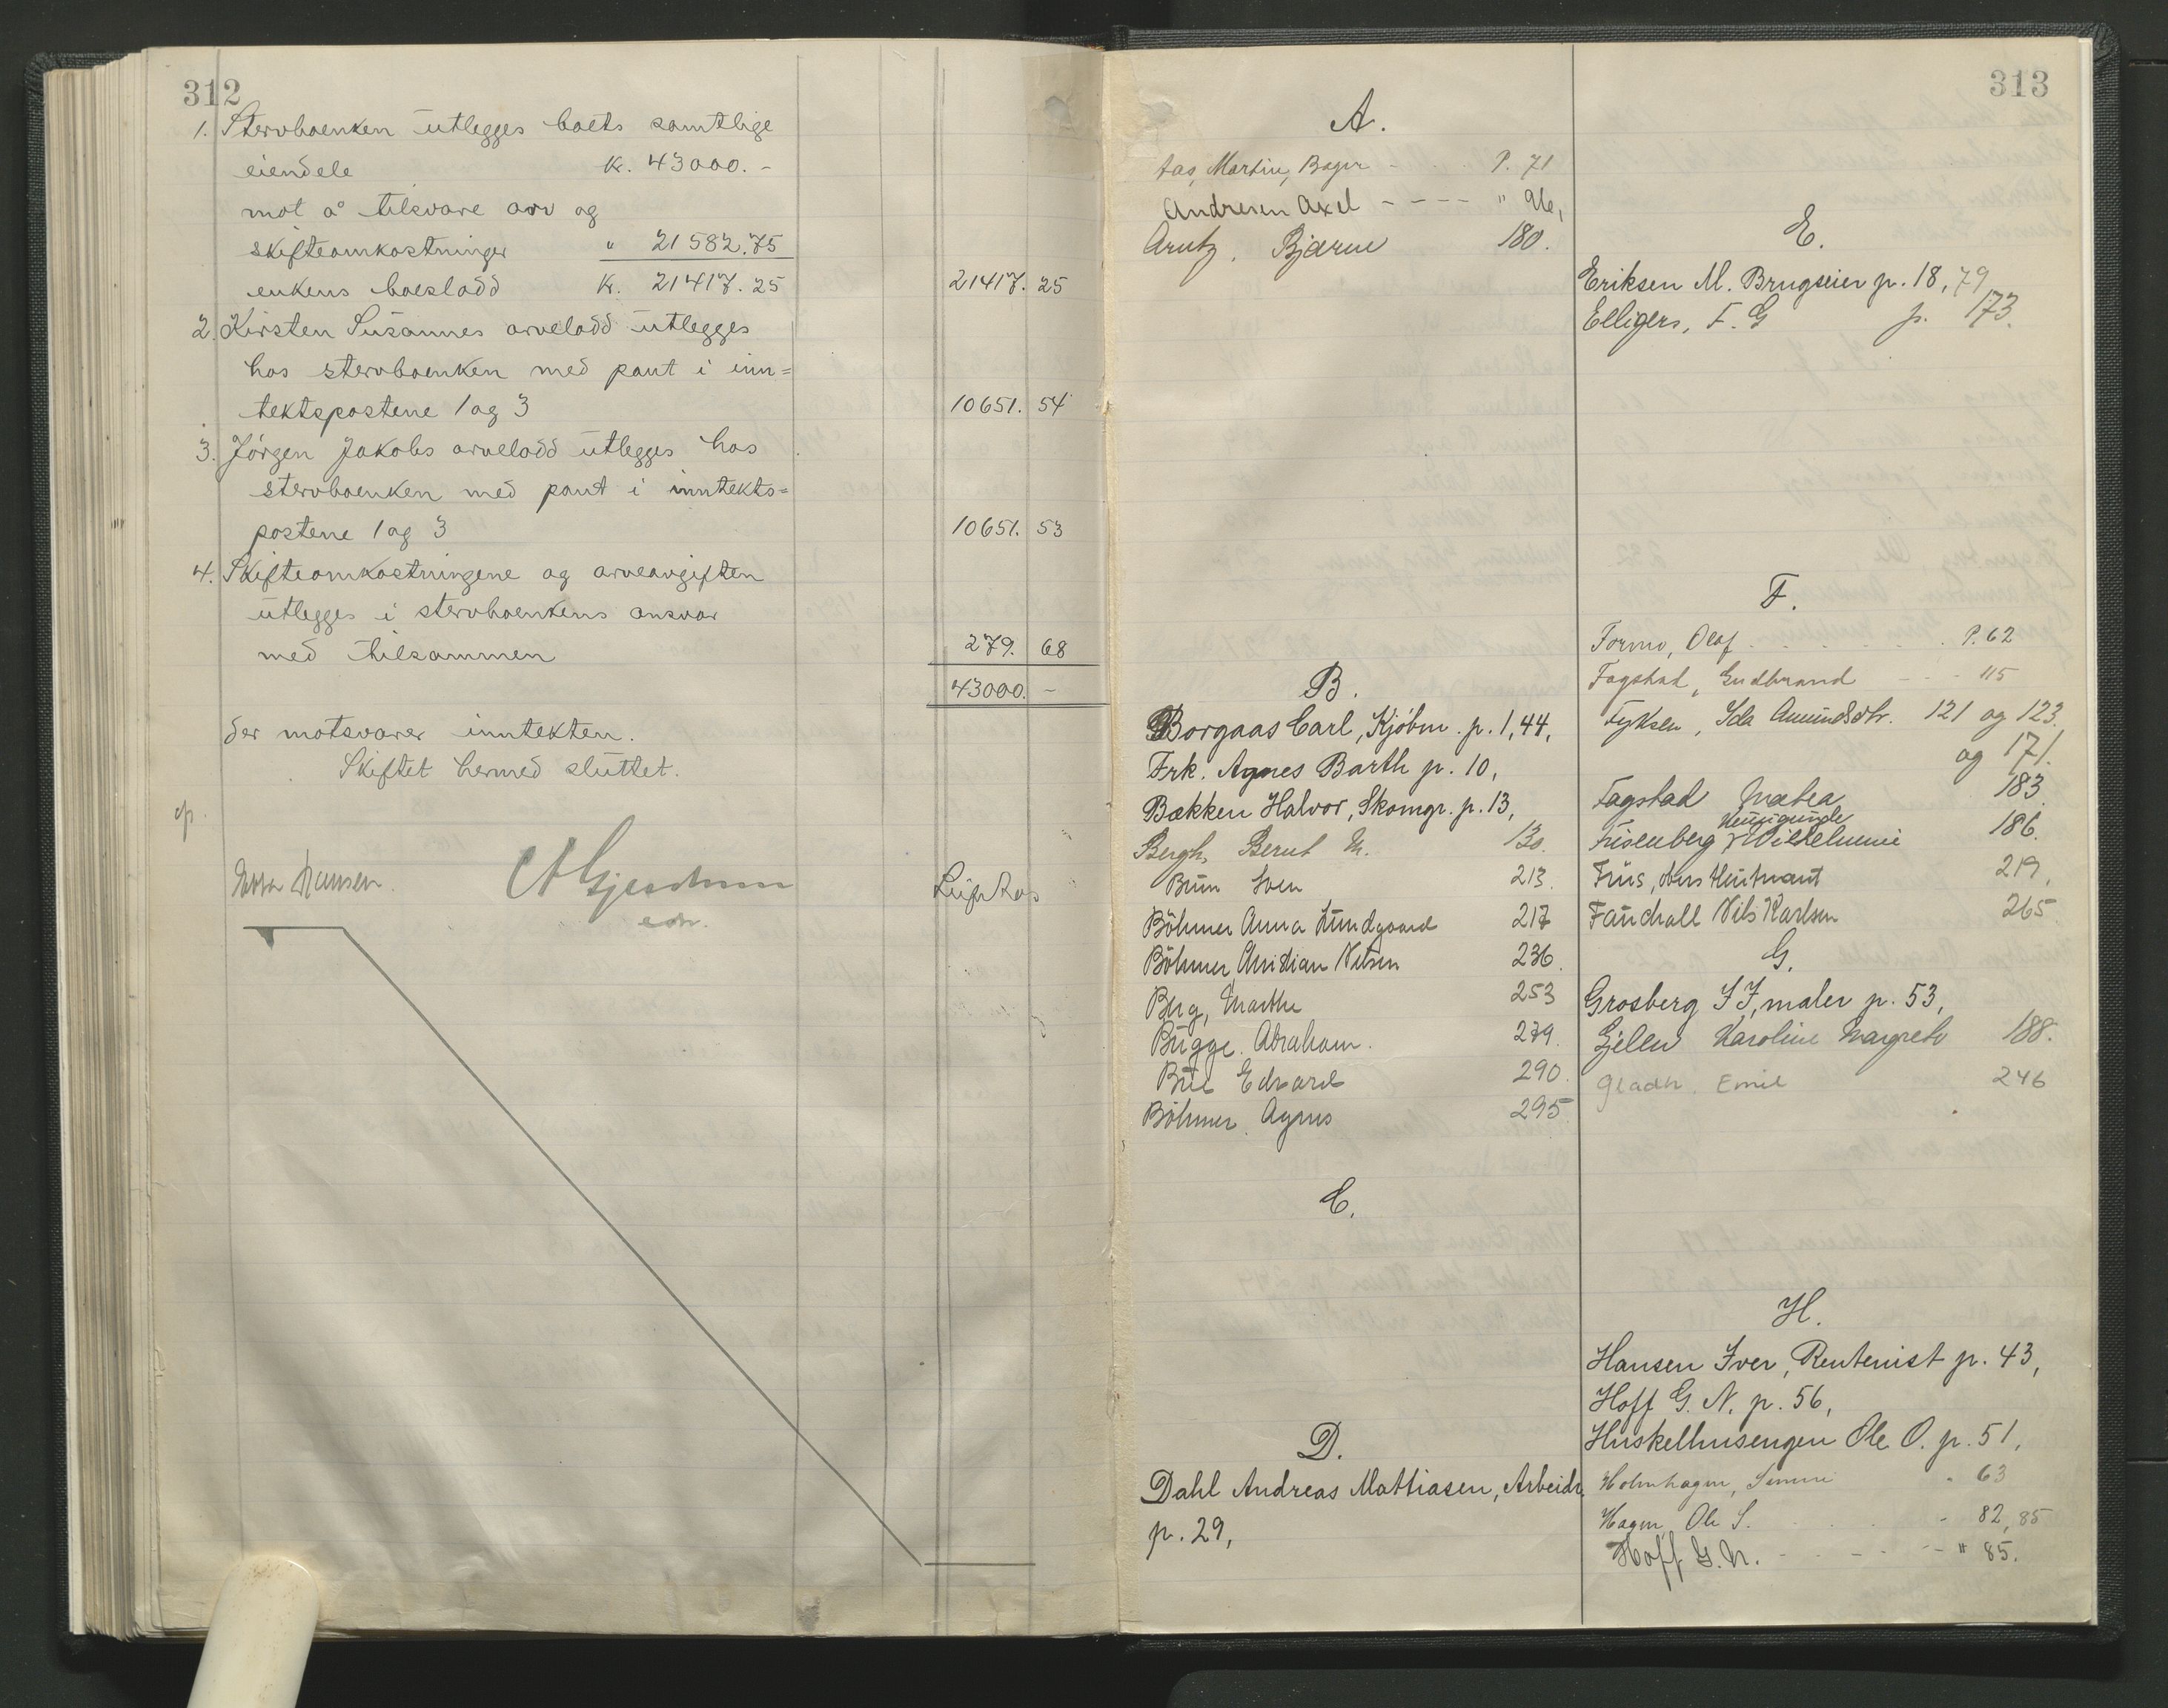 312
1. Stervboenken utlegges boets samtlige
eiendele kr. 43000.-
mot å tilsvare arv og
skifteomkostninger " 21582.75
enkens boeslodd kr. 21417.25 21417. 25
2. Kirsten Susannes arvelodd utlegges
hos stervboenken med pant i inn=
tektspostene 1 og 3 10651. 54
3. Jörgen Jakobs arvelodd utlegges hos
stervboenken med pant i inntekts=
postene 1 og 3 10651. 53
4. Skifteomkostningene og arveavgiften
utlegges i stervboenkens ansvar
med tilsammen 279. 68
43000. -
der motsvarer inntekten.
Skiftet hermed sluttet.
Hansen.
313
A.
Aas, Martin, Bager - P. 71
Andresen Axel - - - - " 96,
Arntz, Bjarne 180.
B.
Borgaas Carl, Kjöbm. p. 1, 44,
Frk. Agnes Barth p. 10,
Bækken Halvor, Skomgr. p. 13,
Bergh, Bernt M. 130.
Brun Sven 213.
Böhmer Anna Lundgaard 217
Böhmer Christian Nilsen 236.
Berg, Marthe 253
Bugge. Abraham. 279.
Bue Edvard 290.
Böhmer. Agnes 295
C.
D.
Dahl Andreas Mattiasen, Arbeidr.
p. 29,
E.
Eriksen M. Brugseier p. 18, 79
Elligers, F. G p. 173.
F.
Formo, Olaf . . . . P. 62
Fagstad, Gudbrand - - - 115
Fyksen, Ida Amundsdtr. 121 og 123.
og 171.
Fagstad Mathea 183.
Kunigunde
Frisenberg Wilhelmine 186.
Friis, oberstløitnant 219.
Fandrall Nils Karlsen 265
G.
Grosberg J J, maler p. 53,
Gjelen Karoline Margrete 188.
Gladh. Emil 246
H.
Hansen Iver, Rentenist p. 43,
Hoff G. N. p. 56,
Huskelhusengen Ole O. p. 51,
Holmhagen, Simen " 63
Hagen, Ole S. - 82, 85
Hoff G. N. - - - - " 85.